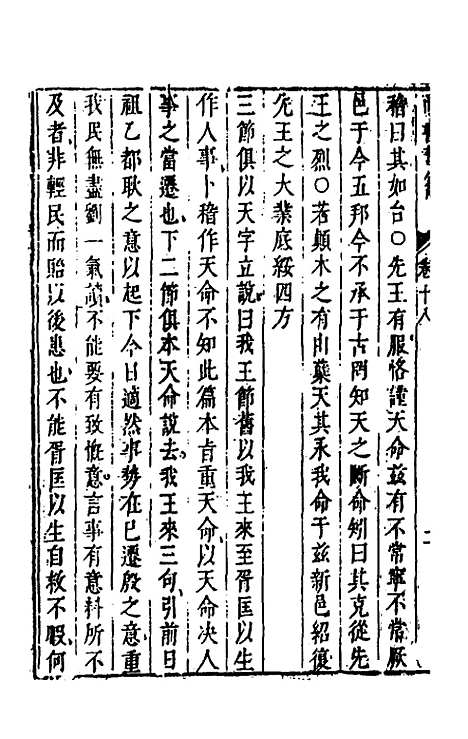 稽曰其如台○先王有服恪謹天命兹有不常寧不常厥
邑于今五邦今不承于古罔知天之斷命矧曰其克從先
王之烈○若顛木之有由蘗天其永我命于兹新邑紹復
先王之大業底綏四方
三節俱以天字立說曰我王節舊以我主來至胥匡以生
作人事卜稽作天命不知此篇本旨重天命以天命决人
事之當遷也下二節俱本天命說去我王來三句引前日
祖乙都耿之意以起下今日適然事勢在巳遷殷之意重
我民無盡劉一氣讀不能要有致慨意言事有意料所不
及者非輕民而貽以後患也不能胥匡以生自救不暇何
卷十八